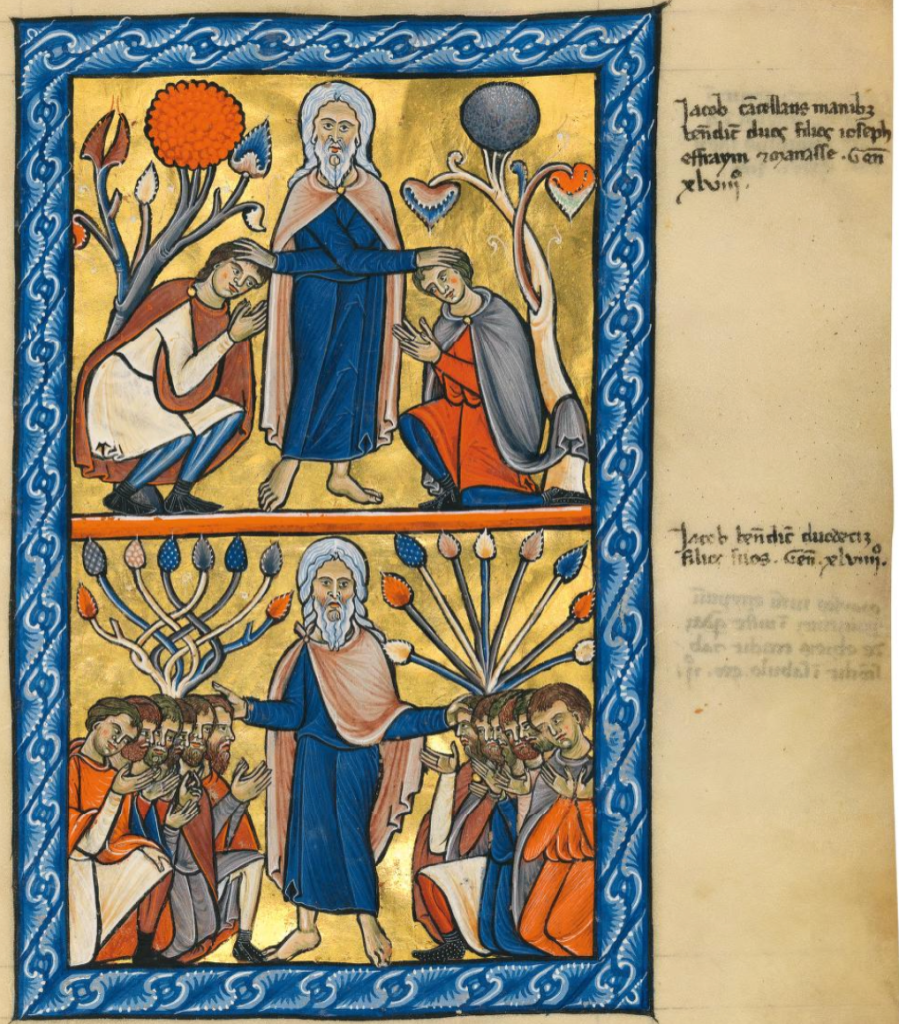 Jacob cãcellans manibꝫ
bñdic̃ duos filios ioseph
effraym ⁊ manasse . Geñ
xlviiiͦ.
Jacob bñdic̃ duodeciꝫ
filios suos . Geñ . xlviiiiͦ.